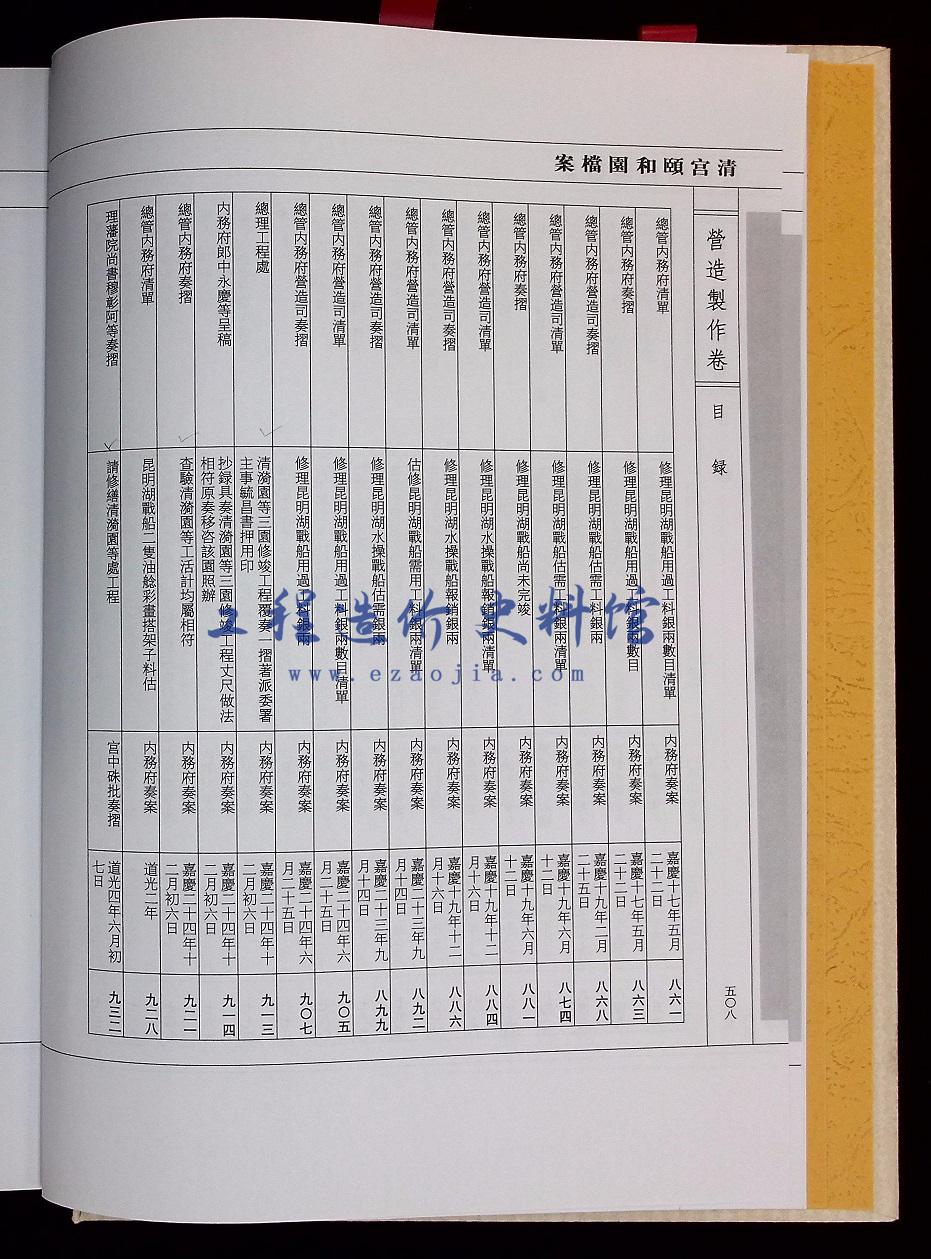 清宫頤和園檔案
營造製作卷
目録
五〇八
總管内務府清單
修理昆明湖戰船用過工料銀兩數目清單
内務府奏案
嘉慶十七年五月
二十二日
八六一
總管内務府奏摺
修理昆明湖戰船用過工料銀兩數目
内務府奏案
嘉慶十七年五月
二十二日
八六三
總管内務府營造司奏摺
修理昆明湖戰船估需工料銀兩
内務府奏案
嘉慶十九年二月
二十五日
八六八
總管内務府營造司清單
修理昆明湖戰船估需工料銀兩清單
内務府奏案
嘉慶十九年六月
十二日
八七四
總管内務府奏摺
修理昆明湖戰船尚未完竣
内務府奏案
嘉慶十九年六月
十二日
八八一
總管内務府營造司清單
修理昆明湖水操戰船報銷銀兩清單
内務府奏案
嘉慶十九年十二
月十六日
八八四
總管内務府營造司奏摺
修理昆明湖水操戰船報銷銀兩
内務府奏案
嘉慶十九年十二
月十六日
八八六
總管内務府營造司清單
估修昆明湖戰船需用工料銀兩清單
内務府奏案
嘉慶二十三年九
月十四日
八九二
總管内務府營造司奏摺
修理昆明湖水操戰船估需銀兩
内務府奏案
嘉慶二十三年九
月十四日
八九九
總管内務府營造司清單
修理昆明湖戰船用過工料銀兩數目清單
内務府奏案
嘉慶二十四年六
月二十五日
九〇五
總管内務府營造司奏摺
修理昆明湖戰船用過工料銀兩
内務府奏案
嘉慶二十四年六
月二十五日
九〇七
總理工程處
清漪園等三園修竣工程覆奏一摺著派委署
主事毓昌書押用印
内務府奏案
嘉慶二十四年十
二月初六日
九一三
内務府郎中永慶等呈稿
抄録具奏清漪園等三園修竣工程丈尺做法
相符原奏移咨該園照辦
内務府奏案
嘉慶二十四年十
二月初六日
九一四
總管内務府奏摺
查驗清漪園等工活計均屬相符
内務府奏案
嘉慶二十四年十
二月初六日
九二一
總管内務府清單
昆明湖戰船二隻油艌彩畫搭架子料估
内務府奏案
道光二年
九二八
理藩院尚書穆彰阿等奏摺
請修繕清漪園等處工程
宫中硃批奏摺
道光四年六月初
七日
九三二
工程造价史料馆
www.ezaojia.com